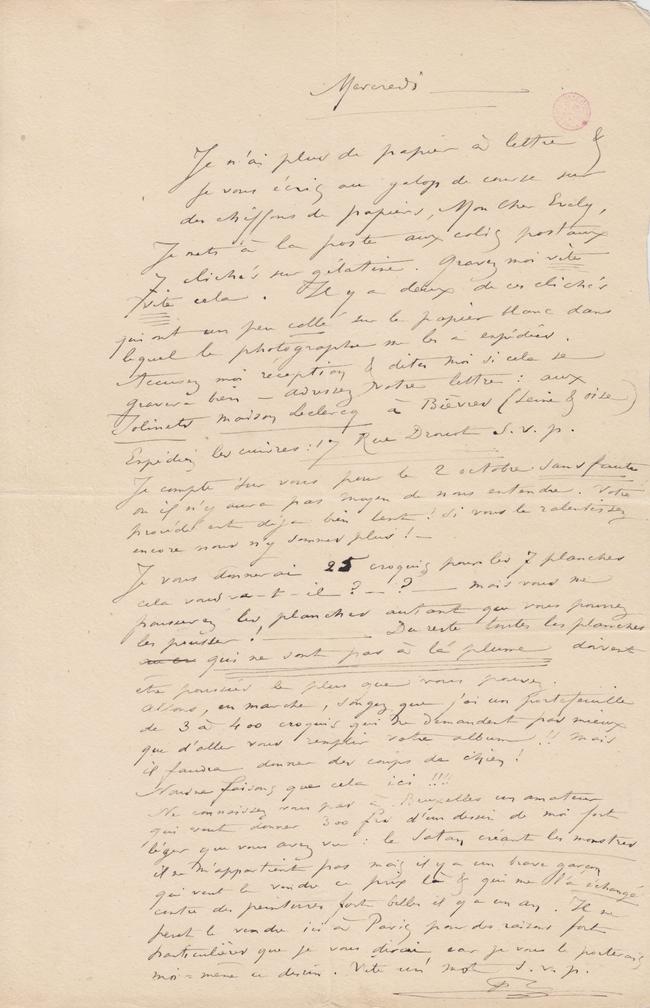 Mercredi
Je n'ai plus de papier à lettre &
je vous écris au galop de course sur
des chiffons de papiers, Mon Cher Evely,
Je mets à la poste aux colis postaux
7 clichés sur gélatine. Gravez moi vite
vite cela. Il y a deux de ces clichés
qui ont un peu collé sur le papier blanc dans
lequel le photographe me les a expédiés.
Accusez moi réception & dites moi si cela se
gravera bien – adressez votre lettre : aux
Jolinets maison Leclercq à Bièvres (Seine & Oise)
Expédiez les cuivres : 17 Rue Drouot S.v.p.
Je compte sur vous pour le 2 octobre sans faute
ou il n'y aura pas moyen de nous entendre. Votre
procédé est déjà bien lent ! Si vous le ralentissez
encore nous n'y sommes plus ! –
Je vous donnerai 25 croquis pour les 7 planches
cela vous va-t-il ? – ? – mais vous me
pousserez les planches autant que vous pourrez
les pousser ! Du reste toutes les planches
qui ne sont pas à la plume doivent
être poussées le plus que vous pouvez.
Allons, en marche, songez que j'ai un portefeuille
de 3 à 400 croquis qui ne demandent pas mieux
que d'aller vous remplir votre album !! mais
il faudra donner des coups de chien !
Nous ne faisons que cela ici !!!
Ne connaissez vous pas à Bruxelles un amateur
qui veut donner 300 frs d'un dessin de moi fort
léger que vous avez vu : le Satan créant les monstres
il ne m'appartient pas mais il y a un brave garçon
qui veut le vendre ce prix là & qui me l'a échangé
contre des peintures fort belles il y a un an. Il ne
peut le vendre ici à Paris pour des raisons fort
particulières que je vous dirai car je vous le porterais
moi-même ce dessin. Vite un mot S.v.p.